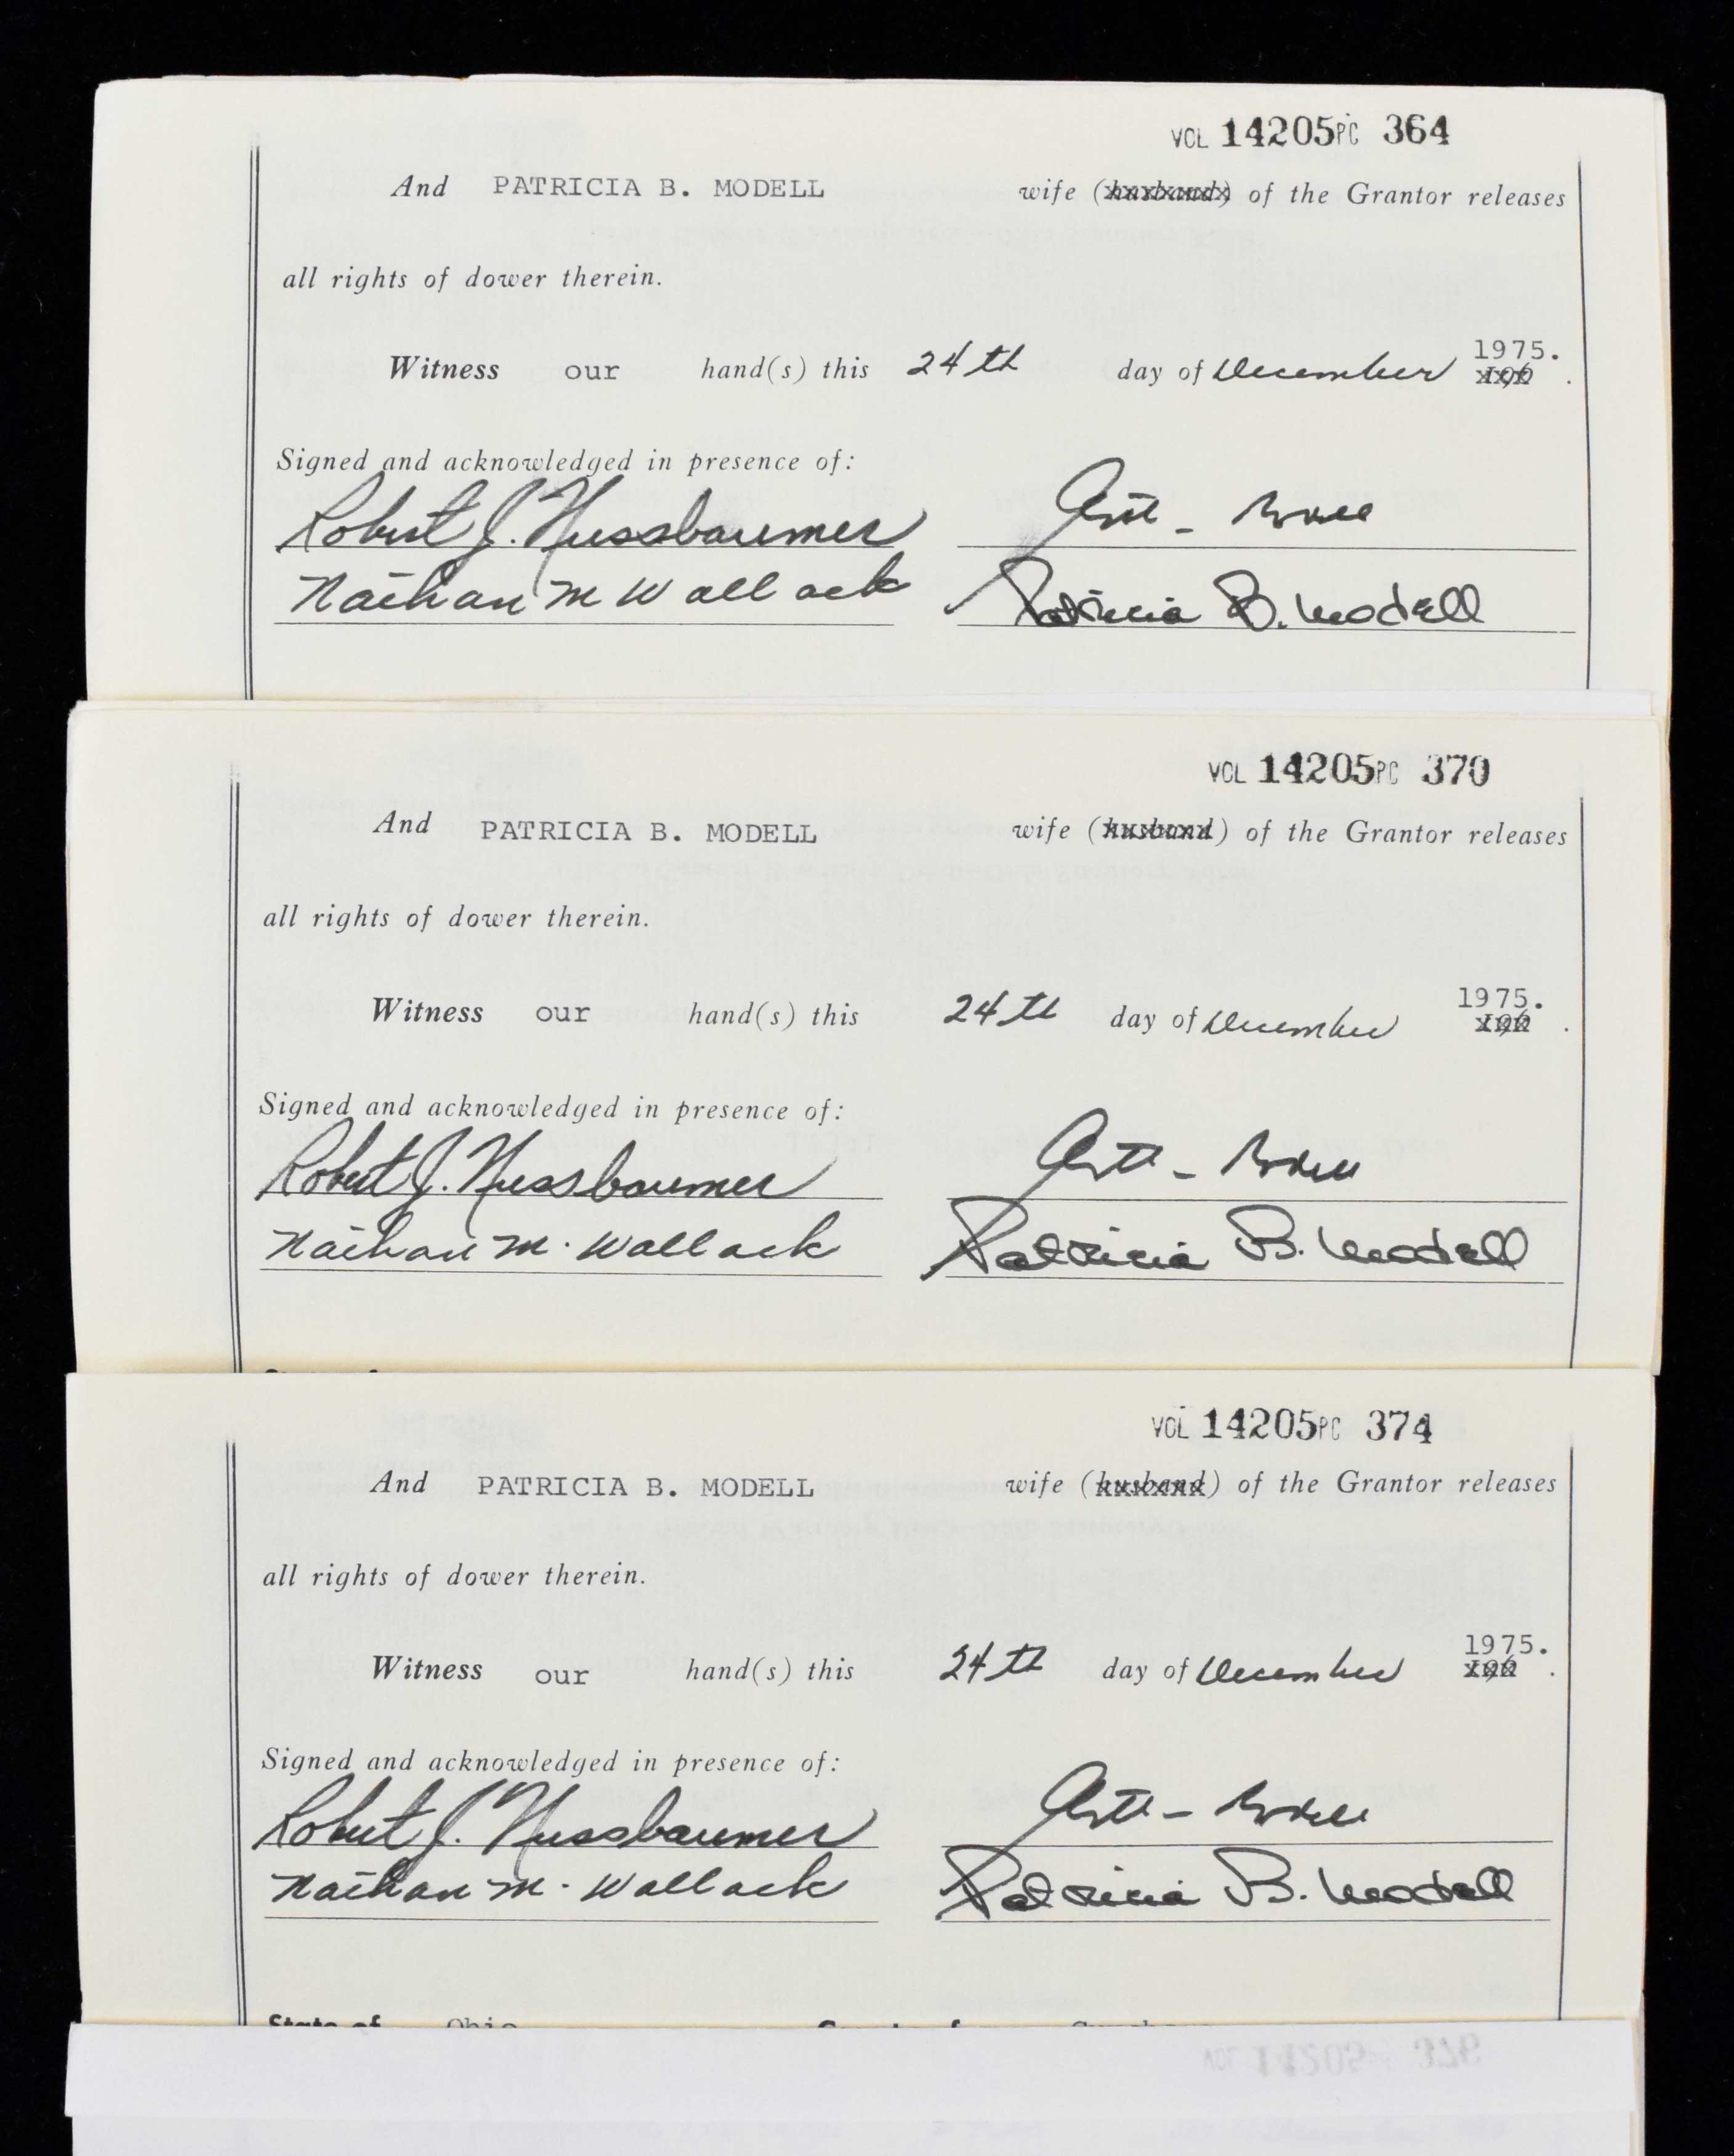 VOL 14205 PG 364
And PATRICIA B. MODELL wife (husband) of the Grantor releases
all rights of dower therein.
1975.
Witness our hand(s) this 24th day of December 196 .
Signed and acknowledged in presence of:
Robert J. Nussbaumer Arthur B. Modell
Nathan M Wallack Patricia B. Modell
VOL 14205 PG 370
And PATRICIA B. MODELL wife (husband) of the Grantor releases
all rights of dower therein.
1975.
Witness our hand(s) this 24th day of December 196 .
Signed and acknowledged in presence of:
Robert J. Nussbaumer Arthur B. Modell
Nathan M. Wallack Patricia B. Modell
VOL 14205 PG 374
And PATRICIA B. MODELL wife (husband) of the Grantor releases
all rights of dower therein.
1975.
Witness our hand(s) this 24th day of December 196 .
Signed and acknowledged in presence of:
Robert J. Nussbaumer Arthur B. Modell
Nathan M. Wallack Patricia B. Modell
State of Ohio
VOL 14205 376